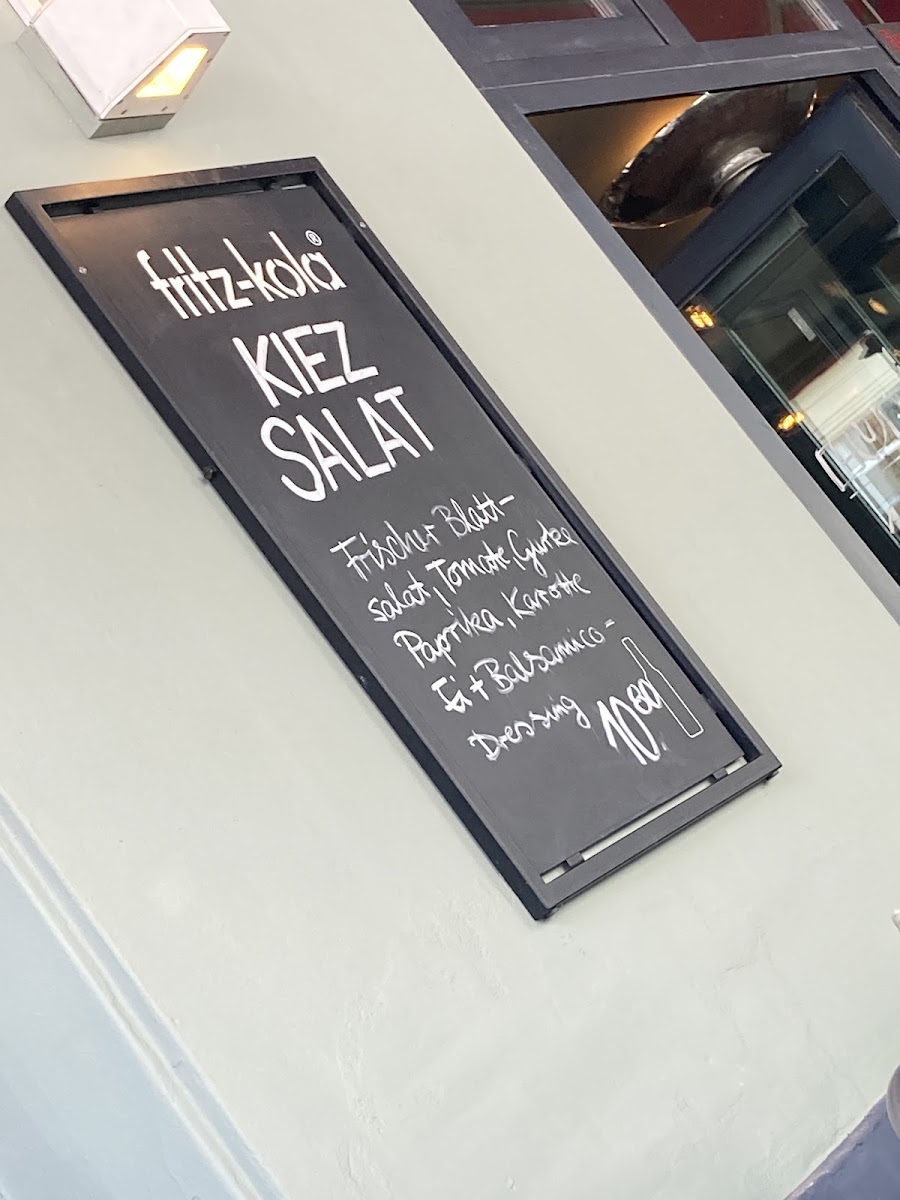 fritz-kola®
KIEZ
SALAT
Frischer Blatt-
salat, Tomate, Gurke
Paprika, Karotte
Ei + Balsamico-
Dressing 10.